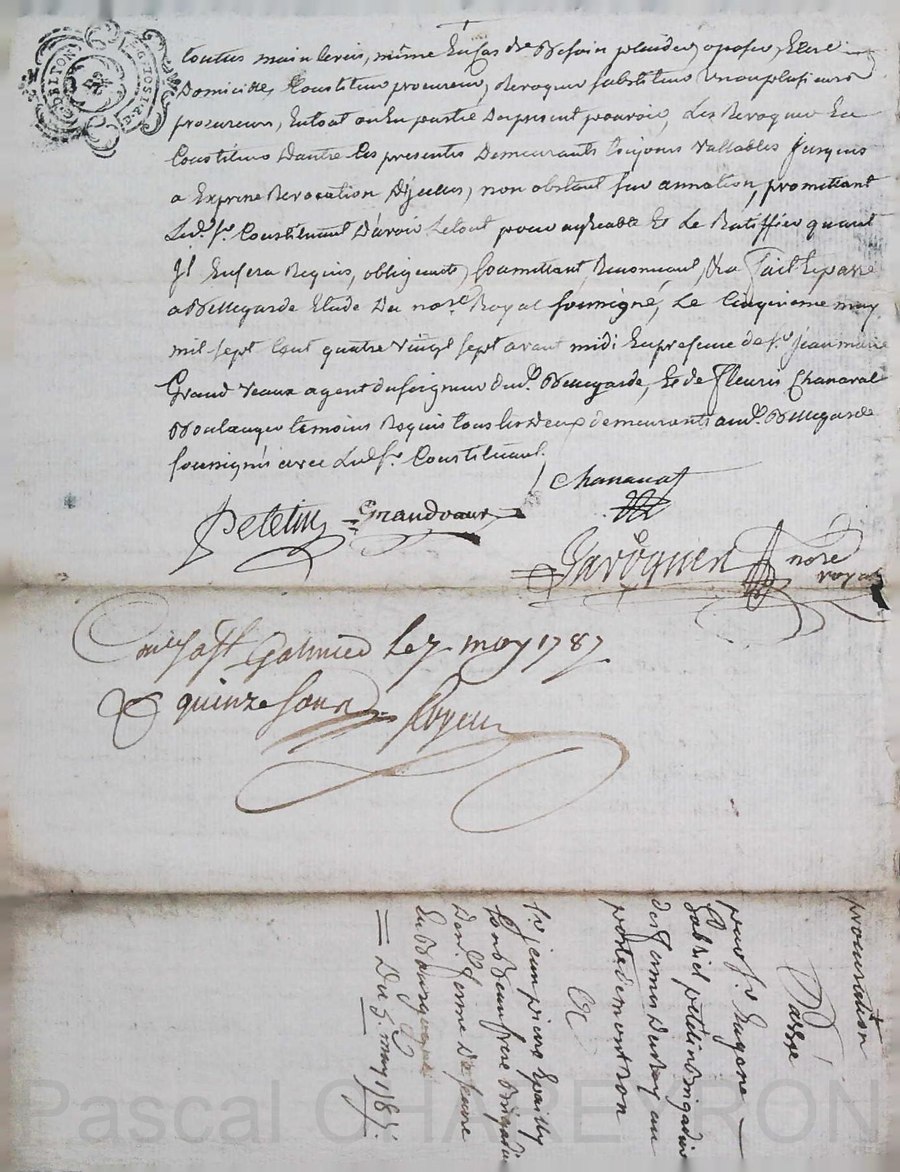 toutes mainlevés, même En Cas de Besoin plaider, oposer, Elire
Domiciles, Constituer procureurs, Revoquer substituer un ou plusieurs
procureurs, En tout ou En partie Du present pouvoir, Les Revoquer En
Constituer Dautre Ces presentes Demeurants toujours Vallables jusques
a Expresse Revocation D'jcelles, non obstant sur annation, promettant
Led. Sr. Constituant D'avoir Le tout pour agréable Et Le Ratiffier quant
Jl En sera Requis, obligeant, soumettant, Renonceant, &a fait Et passé
a Bellegarde Etude Du nore. Royal soussigné, Le Cinquieme may
mil sept Cent quatre Vingt sept avant midi En presence de Sr. jean marie
Grand Vaux agent du seigneur dud. Bellegarde, Et de fleuris Chanavat
Boulanger temoins Requis tous les Deux demeurants aud. Bellegarde
soussignés avec Led. Sr. Constituant.
Chanavat
Petetin Grandvaux
nore
royal
Galmier Le 7 may 1787
quinze sous
procuration
Passé
par Sr. Eugene
Gabriel petetin Brigadier
des fermes Du Roy au
poste de montbron
A
Sr. jean pierre Epailly
son Beaufrere Brigadier
Den. ferme De
En Bourgogne
= Du 5. may 1787.
Pascal CHAREYRON